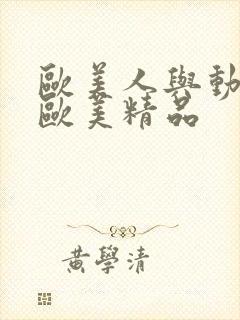 歐美人與動
歐美精品
黃學清